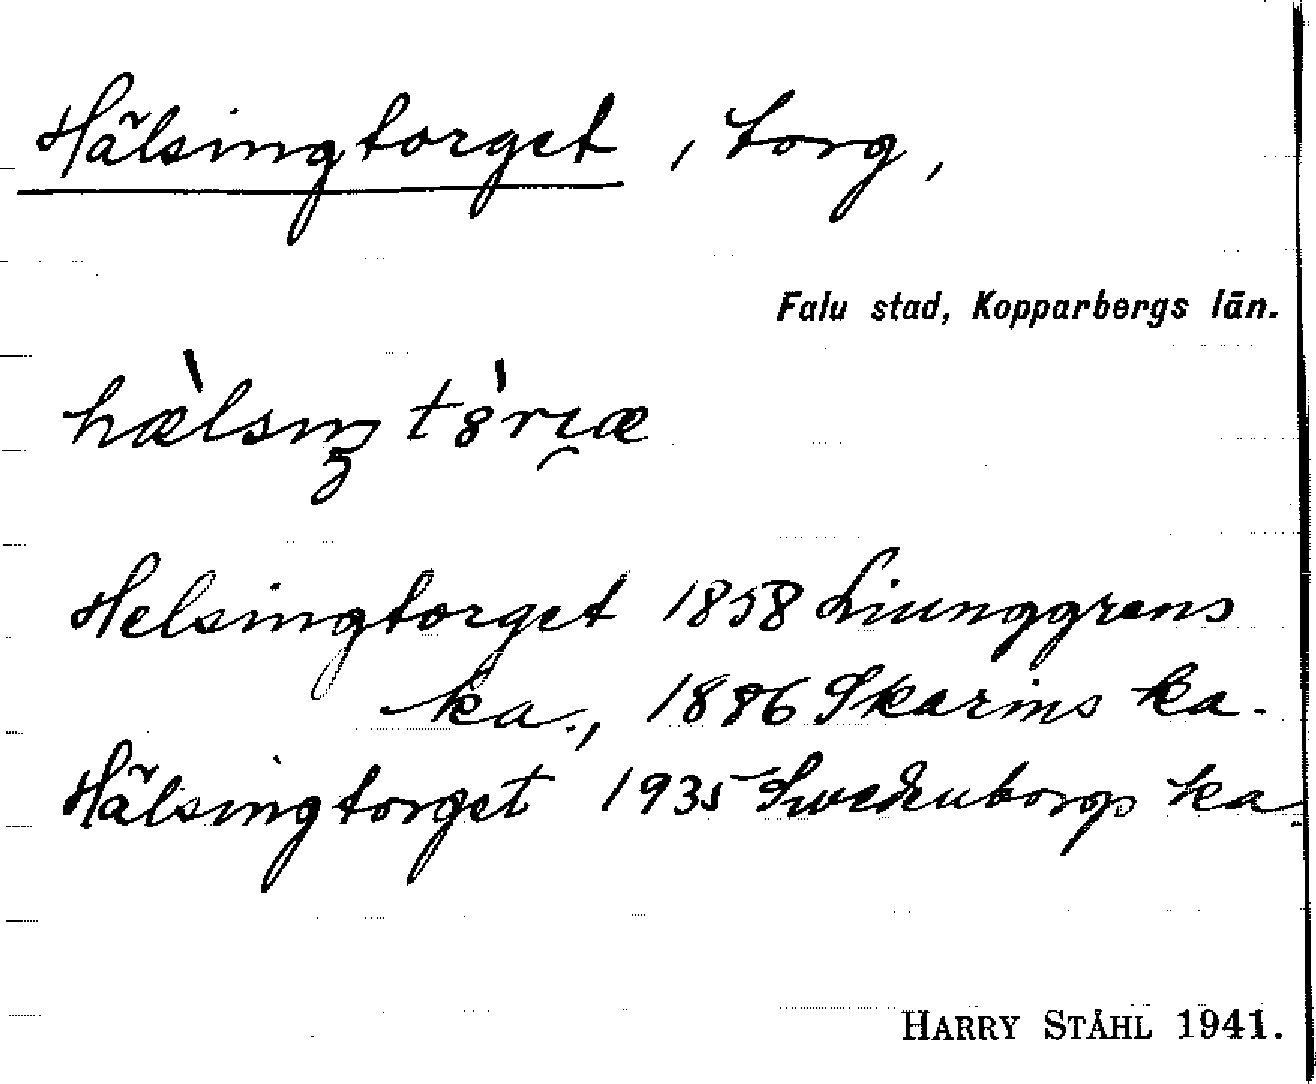 Hälsingtorget, torg,
Falu stad, Kopparbergs län.
Helsingtorget 1858 Liunggrens
ka., 1886 Skarins ka.
Hälsingtorget 1935 Swedenborgs ka.
HARRY STÅHL 1941.